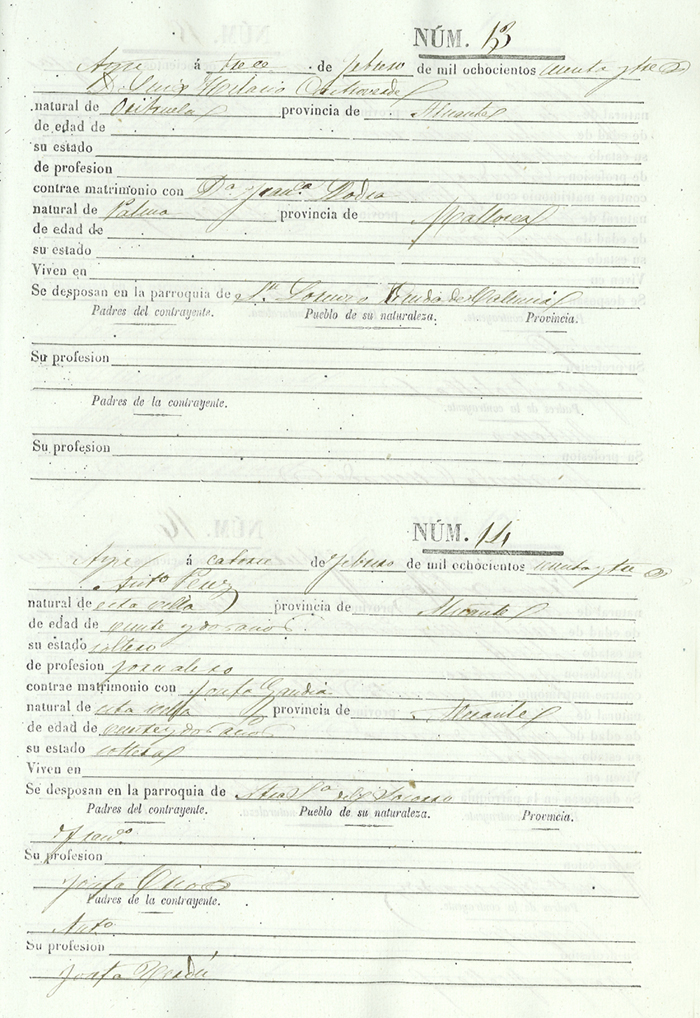 NÚM. 13
Aspe á trece de febrero de mil ochocientos cuarenta y tres
D. Luis Hilario
natural de Orihuela provincia de Alicante
de edad de
su estado
de profesion
contrae matrimonio con Dª. Franca.
natural de Palma provincia de Mallorca
de edad de
su estado
Viven en
Se desposan en la parroquia de Sn. Lorenzo de Valencia
Padres del contrayente. Pueblo de su naturaleza. Provincia.
Su profesion
Padres de la contrayente.
Su profesion
NÚM. 14
Aspe á catorce de febrero de mil ochocientos cuarenta y tres
Anto. Perez
natural de esta villa provincia de Alicante
de edad de veinte y dos años
su estado soltero
de profesion jornalero
contrae matrimonio con Josefa Gandia
natural de esta villa provincia de Alicante
de edad de veinte y dos años
su estado soltera
Viven en
Se desposan en la parroquia de Ntra. Sra. del Socorro
Padres del contrayente. Pueblo de su naturaleza. Provincia.
Franco.
Su profesion
Josefa
Padres de la contrayente.
Anto.
Su profesion
Josefa Verdú